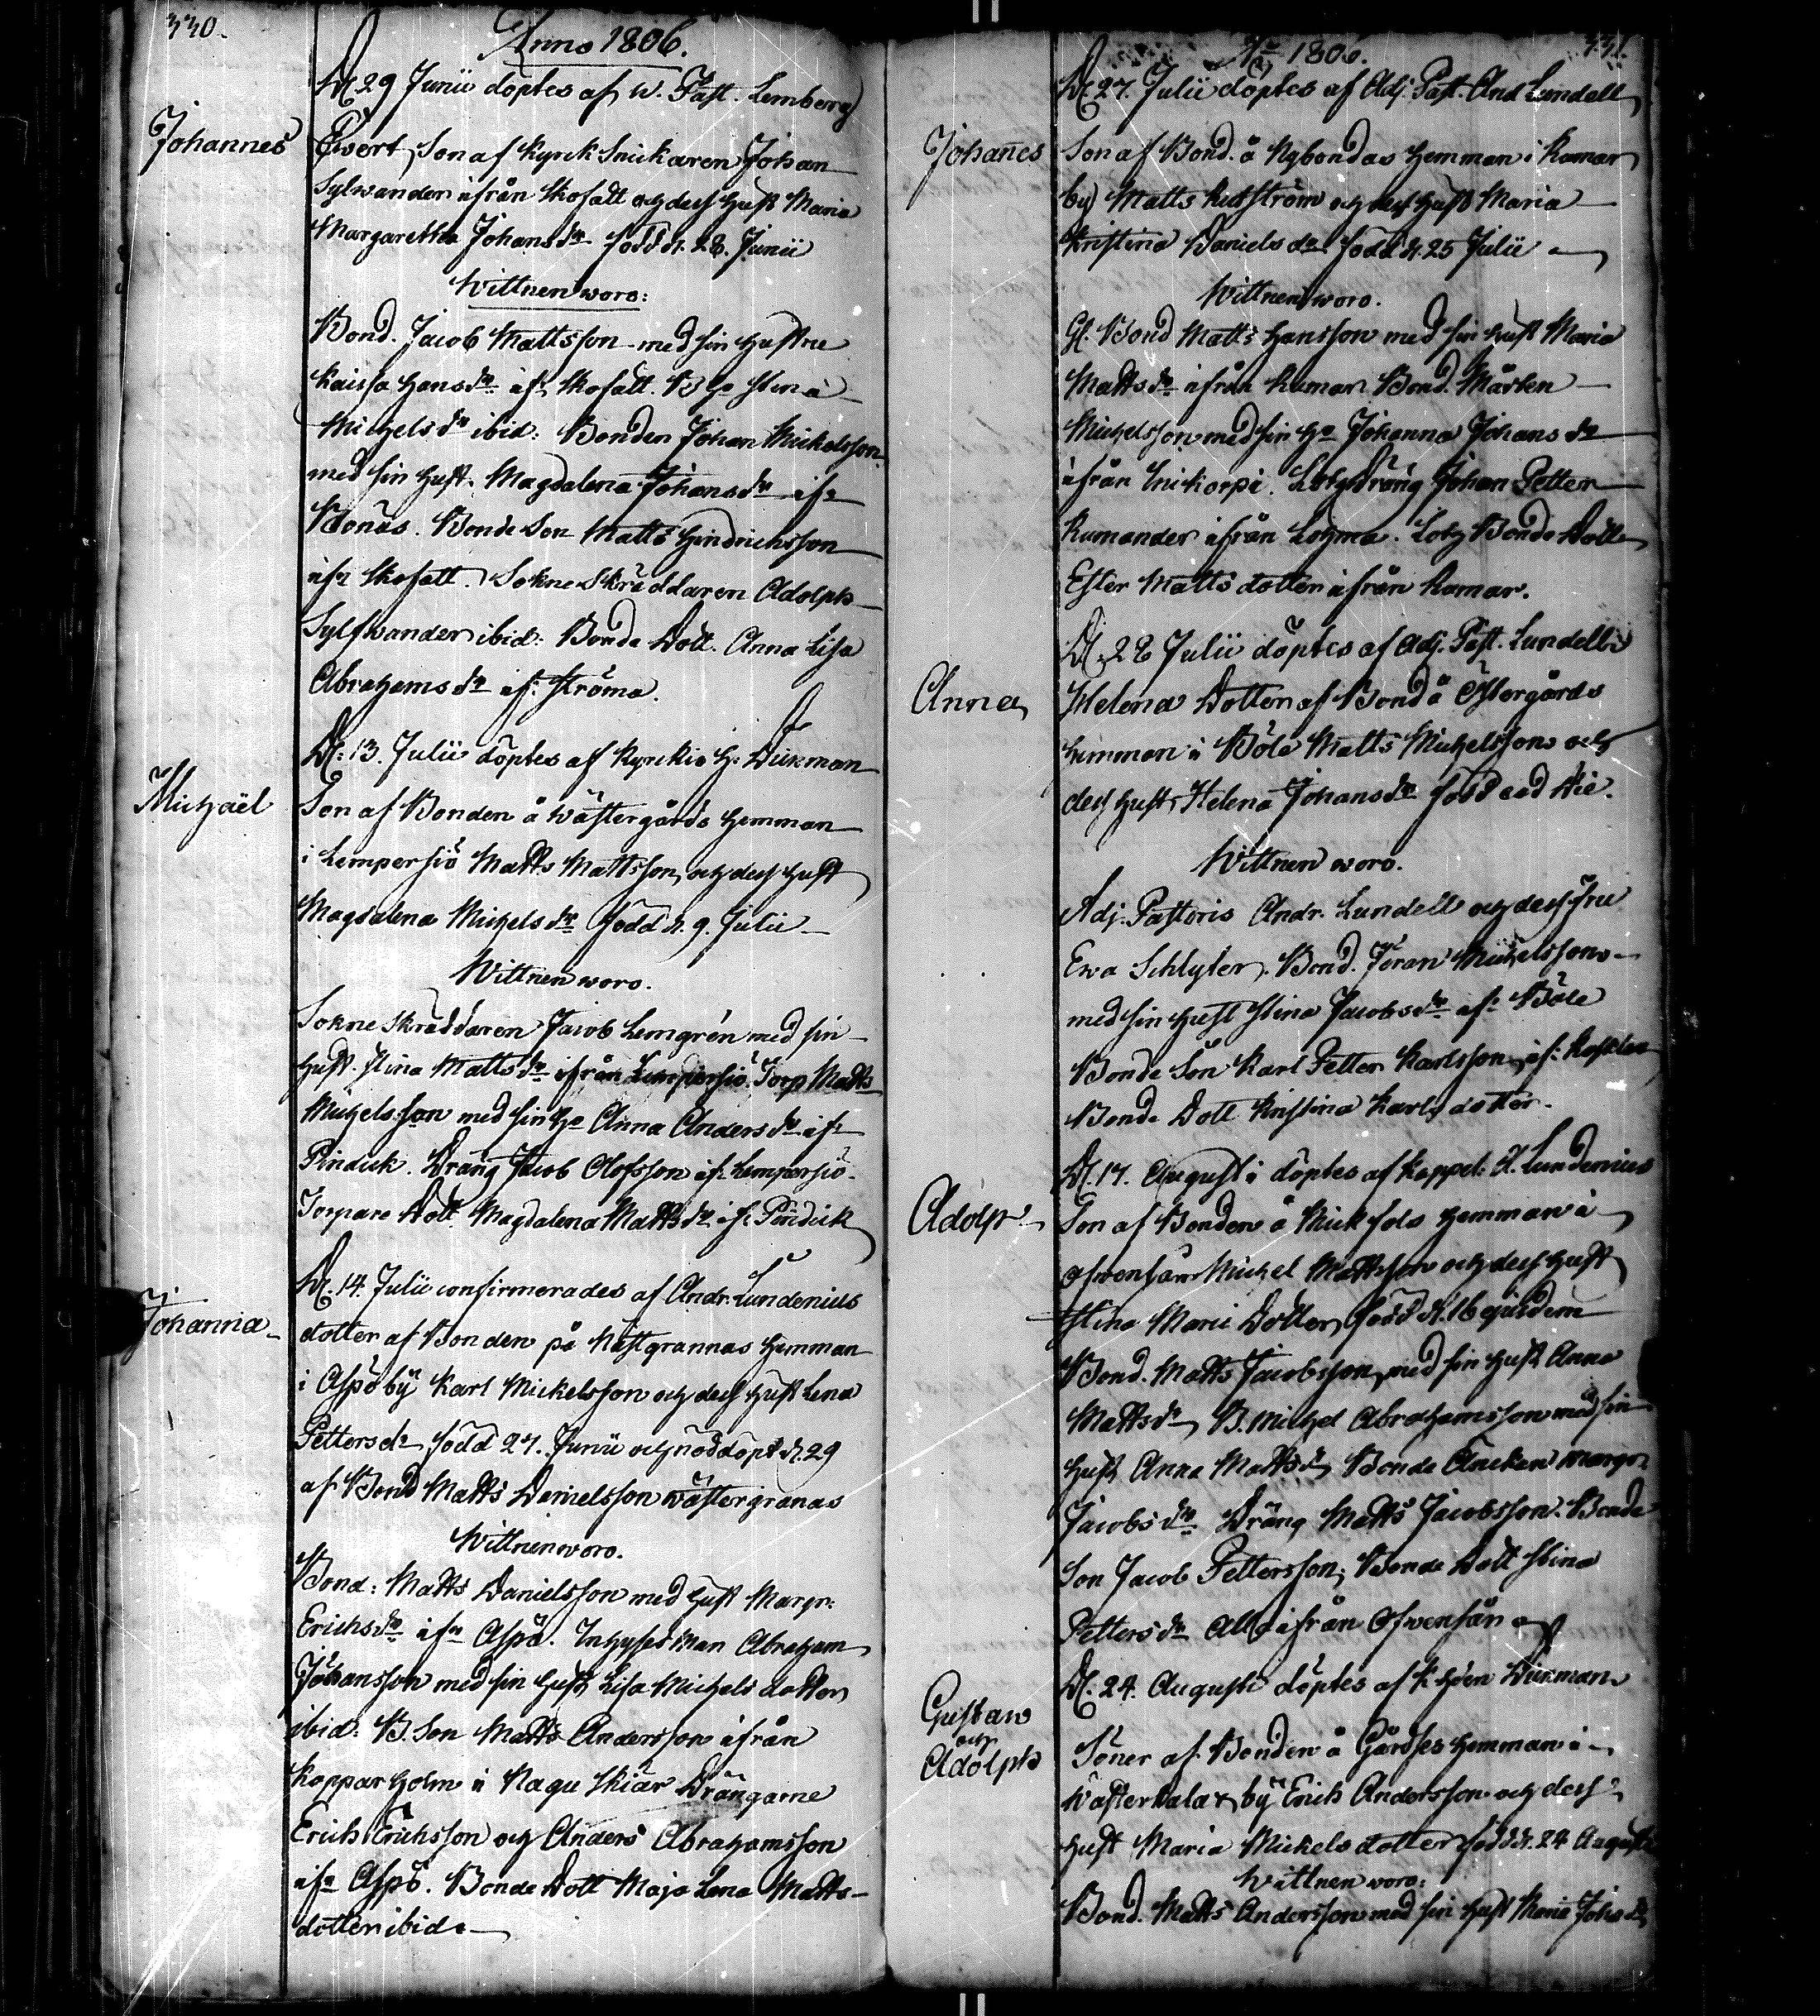 330.
Anno 1806.
D. 29 Junii döptes af W. Past. Lemberg
Johannes
Ewert, Son af Kyrck Snickaren Johan
Sylwander ifrån Skofatt och dess Hust Maria
Margaretha Johansdr född d. 28. Junii
Wittnen woro:
Bond. Jacob Mattsson med sin Hustru
Kaisa Hansdr ifr Skofatt. Stina
Michelsdr ibid: Bonden Johan Mickelsson
med sin Hust. Magdalena Johansdr ifr
Bonäs. Bonde Son Matts Hindrichsson
ifr Skofatt. Sokne Skräddaren Adolph
Sylfwander ibid: Bonde Dott. Anna Lisa
Abrahamsdr if: Ströma.
D: 13. Julii döptes af Kyrckio H. Dickman
Michaël
Son af Bonden å Wästergårds Hemman
i Lempersiö Matts Mattsson, och dess Hust
Magdalena Michelsdr född d. 9. Julii
Wittnen woro.
Sokne Skräddaren Jacob Lemgrén med sin
Hust. Stina Mattsdr ifrån Lempersiö. Torp Matts
Michelsson med sin Ha Anna Andersdr ifr
Pindick. Dräng Jacob Olofsson if: Lempersiö.
Torpare Dott. Magdalena Mattsdr if: Pindick
D. 14. Julii confirmerades af Andr. Lundenius
Johanna
dotter af Bonden på Nästgrannas Hemman
i Aspö bÿ Karl Mickelsson och dess Hust Lena
Pettersdr född 27. Junii och nöddöpt d. 29
af Bond Matts Danielsson wästergranas
Wittnen woro.
Bond: Matts Danielsson med Hust Margr.
Erichsdr ifr Aspö. Inhyses Man Abraham
Johansson med sin Hust Lisa Michels dotter
ibid: B. Son Matts Andersson ifrån
Kopparholm i Nagu Skiär Drängarne
Erich Erichsson och Anders Abrahamsson
ifr Aspö. Bonde Dott Maja Lena Matts-
dotter ibid.
331.
Ao 1806.
D. 27. Julii döptes af Adj. Past. And Lundell
Johannes
Son af Bond. å Nybondas Hemman i Kamar
by Matts Kullström och dess Hust Maria
Kristina Danielsdr född d. 25 Julii
Wittnen woro.
Gl. Bond Matts Hansson med sin Hust Maria
Mattsdr ifrån Kamar. Bond. Mårten
Michelsson med sin Ha Johanna Johansdr
ifrån Knikorpi. Dräng Johan Petter
Kumander ifrån Lohma. Bonde Dott
Ester Matts dotter ifrån Kamar.
D. 28 Julii döptes af Adj. Past. Lundell
Anna
Helena Dotter af Bond å Östergårds
Hemman i Böle Matts Michelsson och
dess Hust Helena Johansdr född eod die.
Wittnen woro.
Adj. Pastoris Andr. Lundell och dess Fru
Ewa Schlyter. Bond. Jöran Michelsson
med sin Hust Stina Jacobsdr af: Böle
Bonde Son Karl Petter Karlsson, if:
Bonde Dott Kristina Karls dotter.
D. 17. Augusti döptes af Kappel: A. Lundenius
Adolph
Son af Bonden å Mickfols Hemman i
Ofwensår Michel Mattsson och dess Hust
Stina Marie Dotter, född d. 16 ejusdem
Bond. Matts Jacobsson, med sin Hust Anna
Mattsdr, B. Michel Abrahamsson med sin
Hust. Anna Mattsdr, Bonde Änckan Margr.
Jacobsdr Dräng Matts Jacobsson. Bonde
Son Jacob Pettersson; Bonde Dott Stina
Pettersdr Alla ifrån Ofwensår
D. 24. Augusti döptes af K. H:en Dickman
Gustaw
och
Adolph
Söner af Bonden å Gårdses Hemman i
Wästerkalax by Erich Andersson och dess
Hust Maria Mickels dotter född d. 24 Augusti
Wittnen woro:
Bond. Matts Andersson med sin Hust Maria Johsdr